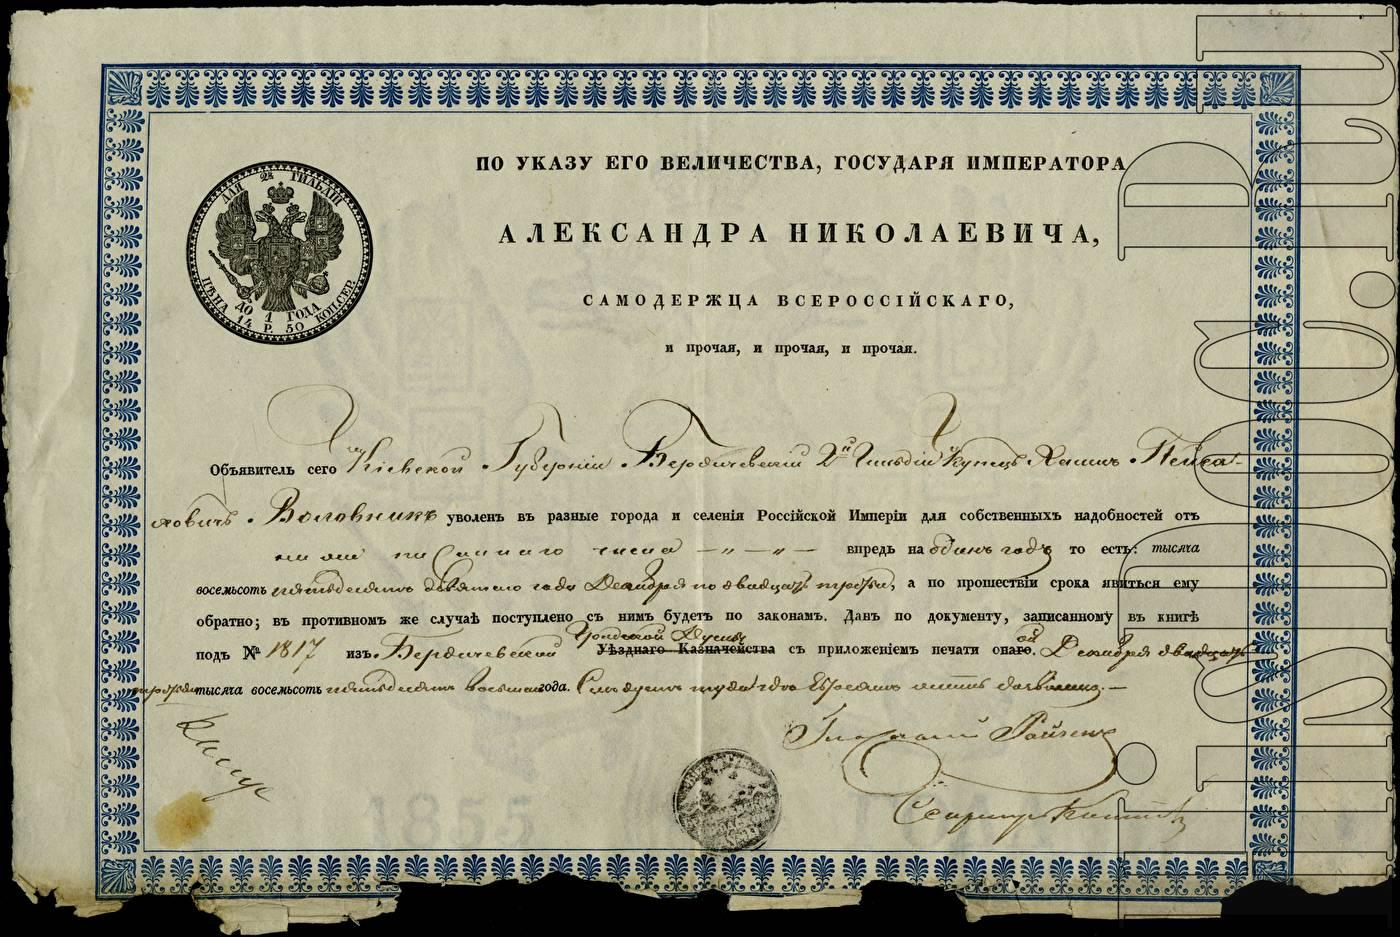 ПО УКАЗУ ЕГО ВЕЛИЧЕСТВА, ГОСУДАРЯ ИМПЕРАТОРА
АЛЕКСАНДРА НИКОЛАЕВИЧА,
САМОДЕРЖЦА ВСЕРОССІЙСКАГО,
и прочая, и прочая, и прочая.
ДЛЯ 2й ГИЛЬДІИ
ЦѢНА ДО 1 ГОДА
14 Р. 50 КОП.СЕР.
Объявитель сего Кіевской Губерніи Бердичевскій 2й Гильдіи Купецъ Хаимъ Пейса-
ховичъ Воловникъ уволенъ въ разные города и селенія Россійской Имперіи для собственныхъ надобностей отъ
ниже писаннаго числа — „ — „ — впредь на одинъ годъ то есть: тысяча
восемьсотъ пятьдесятъ девятаго года Декабря по двадцать третье, а по прошествіи срока явиться ему
обратно; въ противномъ же случаѣ поступлено съ нимъ будетъ по законамъ. Данъ по документу, записанному въ книгѣ
подъ № 1817 изъ Бердичевской Городской Думы Уѣзднаго Казначейства съ приложеніемъ печати оной. Декабря двадцать
третьяго тысяча восемьсотъ пятьдесятъ восьмаго года.
1855 ГОДА
LitSDOC.ru